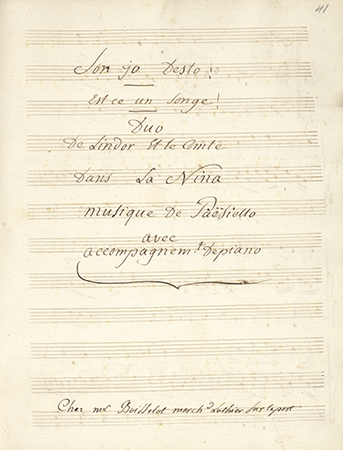 41
Son jo Desto!
Est ce un Songe!
Duo
De Lindor Et le Comte
Dans La Nina
musique De Paësiello
avec
accompagnem.t De piano
Chez mr Boisselot march.d Luthier Sur le port